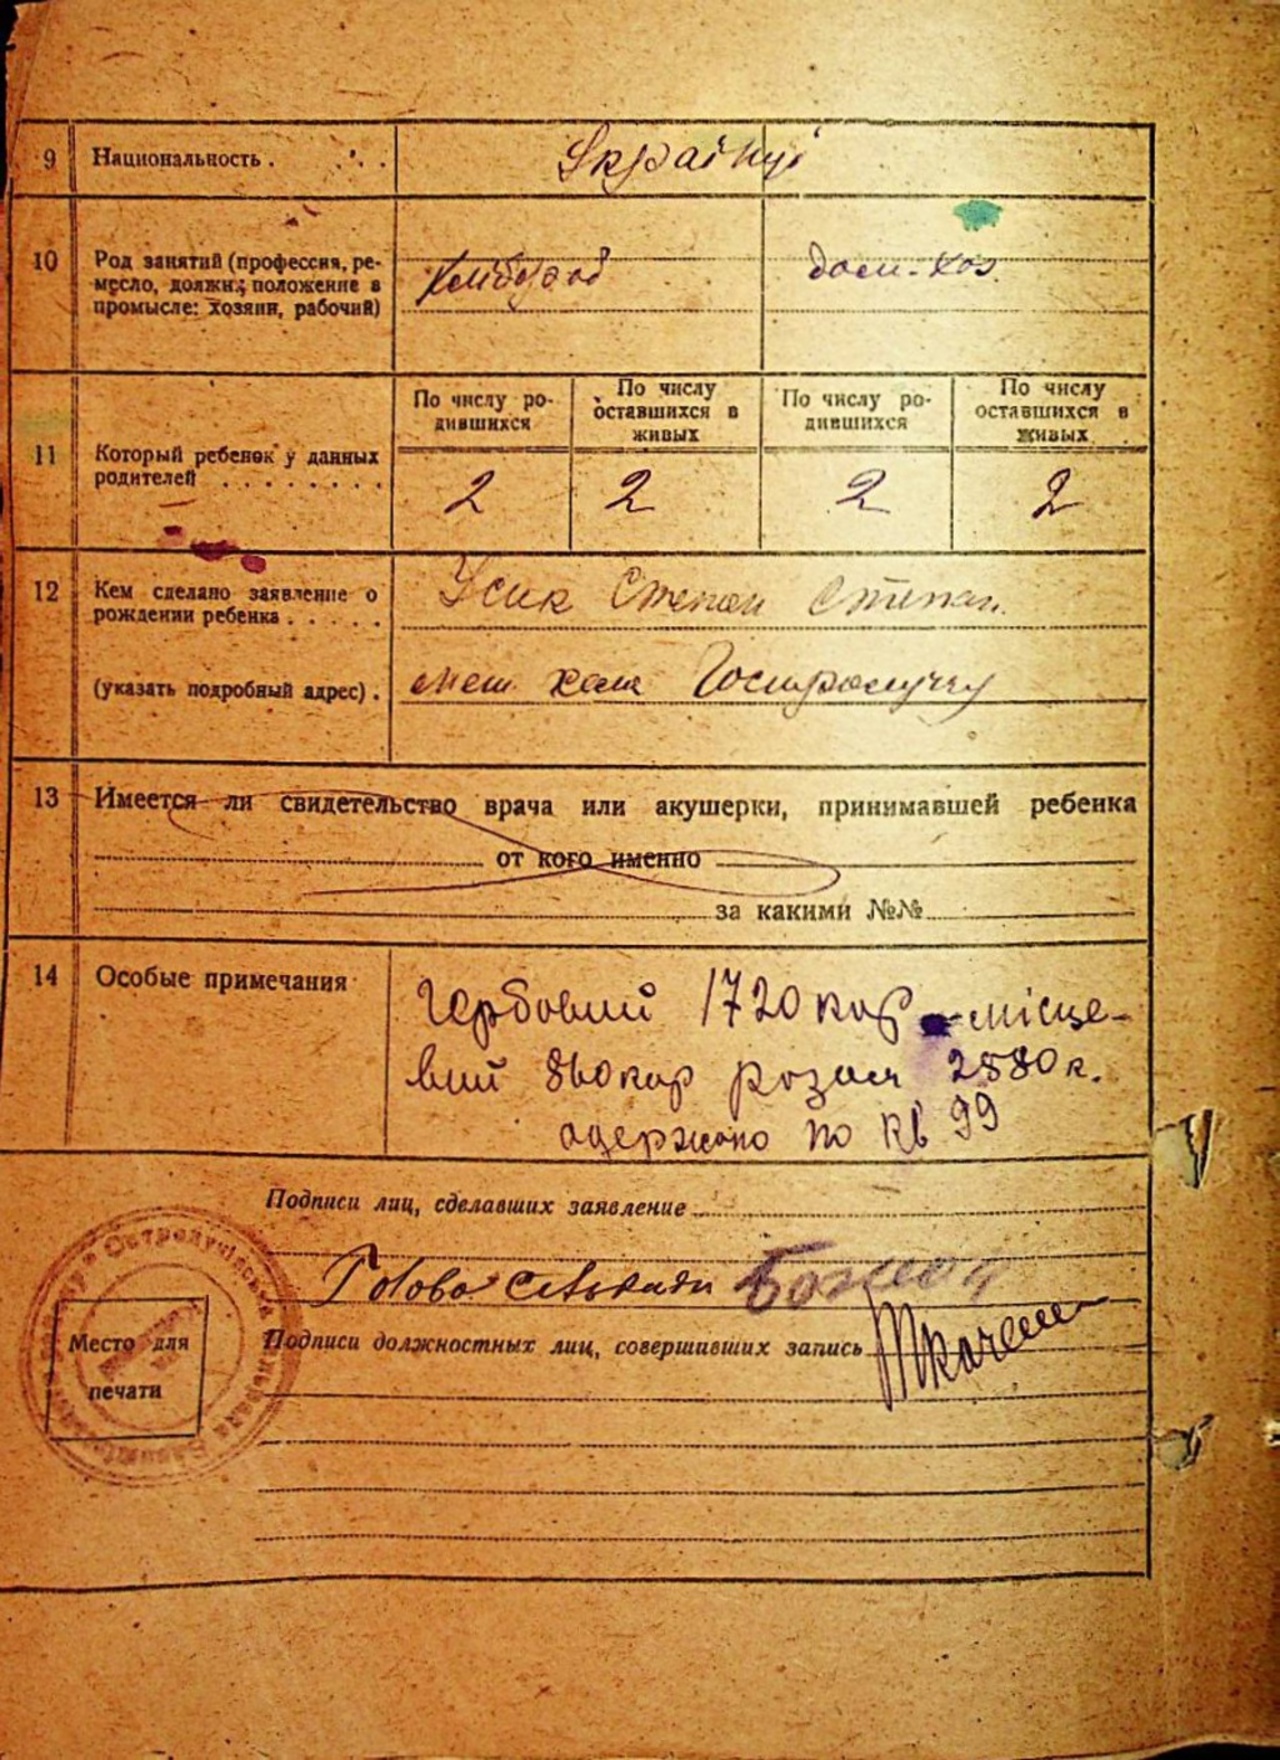 9 Национальность . . . . Українці
10 Род занятий (профессия, ре-
месло, должн.; положение в
промысле: хозяин, рабочий)
дом-хоз.
По числу ро-
дившихся
По числу
оставшихся в
живых
По числу ро-
дившихся
По числу
оставшихся в
живых
11 Который ребенок у данных
родителей . . . . . . . .
2 2 2 2
12 Кем сделано заявление о
рождении ребенка . . . . .
Усик Степан Степан.
(указать подробный адрес) .
13 Имеется ли свидетельство врача или акушерки, принимавшей ребенка
от кого именно
за какими №№
14 Особые примечания
Гербовий 1720 кар - місце-
вий 860 кар разом 2580 к.
одержано по кв 99
Подписи лиц, сделавших заявление
Голова сільради
Подписи должностных лиц, совершивших запись
Место для
печати